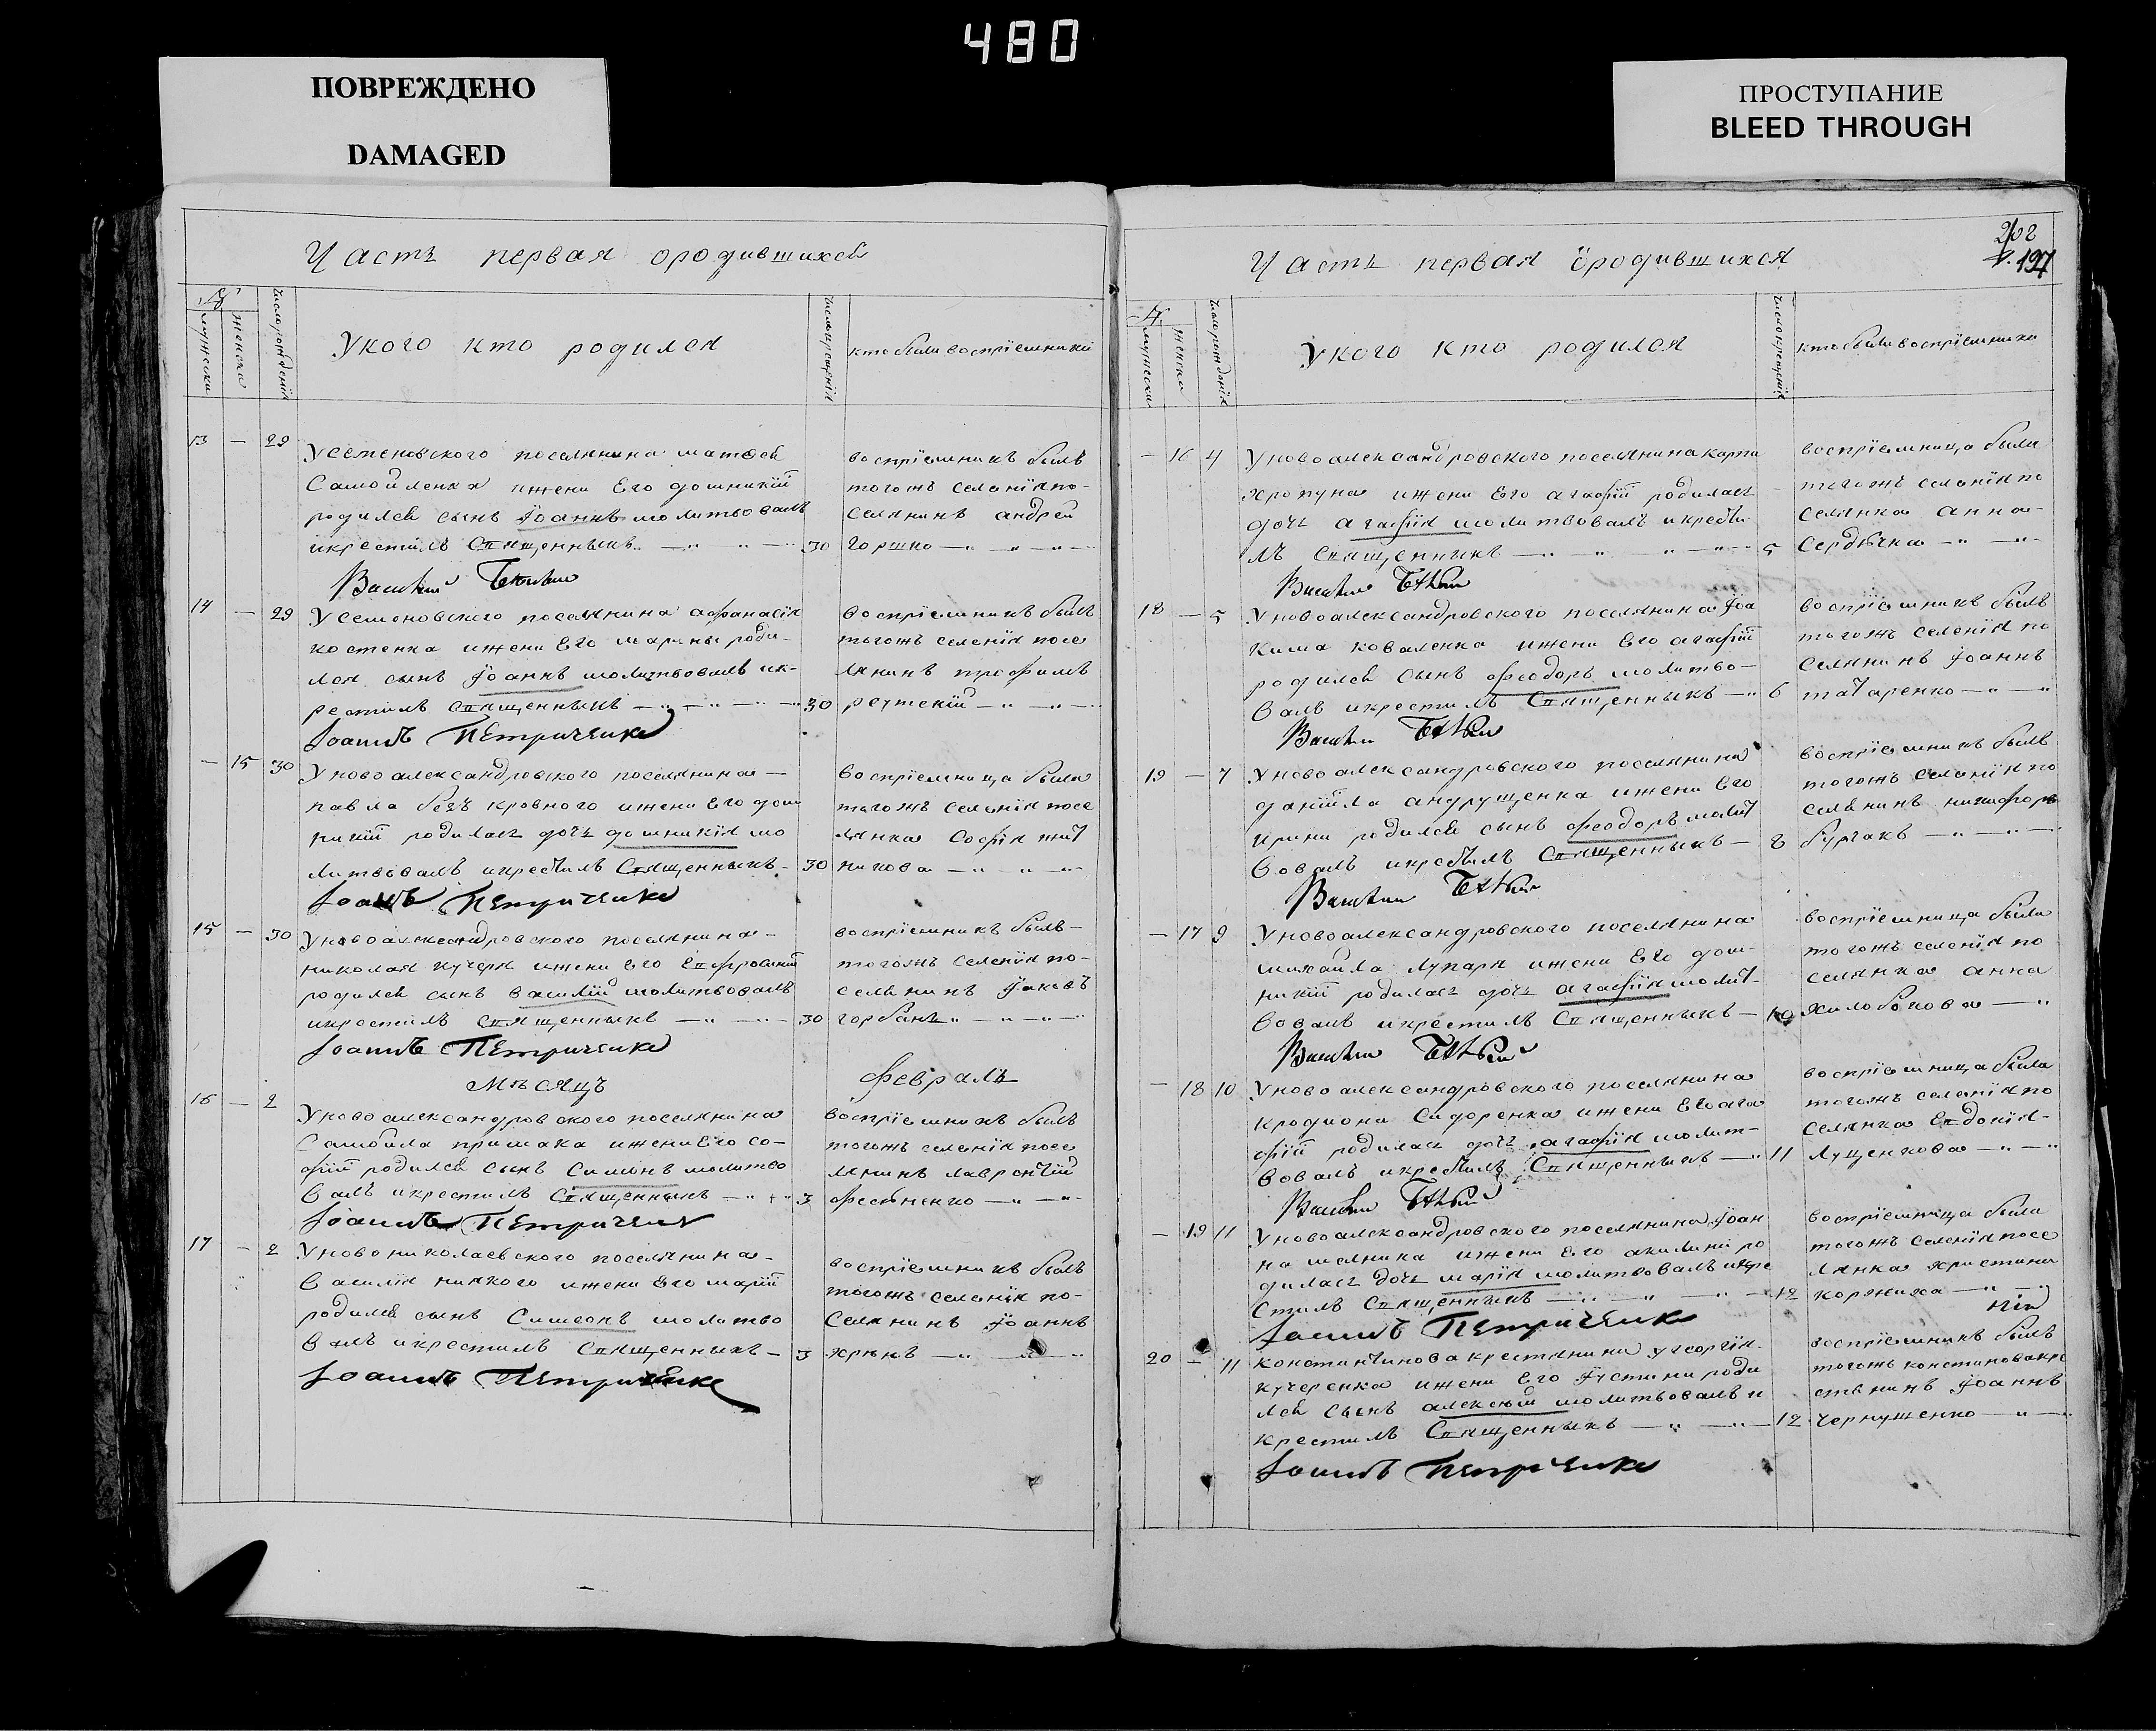 480
ПОВРЕЖДЕНО
DAMAGED
ПРОСТУПАНИЕ
BLEED THROUGH
Часть первая ородившихся
№
мужеска
женска
число рожденія
Укого кто родился
число крещенія
кто были воспріемники
13 — 29
Усеменовского поселянина матвея
Самойленка ижени Его домникіи
родился сынъ Іоаннъ молитвовалъ
икрестилъ Священникъ 30
Василій
воспріемникъ былъ
тогожъ селенія по-
селянинъ андрей
горшко
14 — 29
Усеменовского поселянина афанасія
костенка ижени Его марини роди-
лся сынъ Іоаннъ молитвовалъ ик-
рестилъ Священникъ 30
Іоаннъ Петриченко
воспріемникъ былъ
тогожъ селенія посе
лянинъ трофимъ
реутскій
— 15 30
Уновоалександровского поселянина —
павла безъ кровного ижени Его дом
никіи родилась дочь домникія мо
литвовалъ икрестилъ Священникъ 30
Іоаннъ Петриченко
воспріемница была
тогожъ селенія посе
лянка Софія жит
никова
15 — 30
Уновоалександровского поселянина —
николая кучеря ижени Его Евфросиніи
родился сынъ василій молитвовалъ
икрестилъ Священникъ 30
Іоаннъ Петриченко
воспріемникъ былъ —
тогожъ селенія по-
селянинъ Іаковъ
горбань
Мѣсяцъ февраль
16 — 2
Уновоалександровского поселянина
Самойла примака ижени Его со-
фіи родился сынъ Симеонъ молитво
валъ икрестилъ Священникъ 3
Іоаннъ Петриченко
воспріемникъ былъ
тогожъ селенія посе
лянинъ лаврентій
фесѣненко
17 — 2
Уновониколаевского поселянина —
василія низкого ижени Его маріи
родился сынъ Симеонъ молитво
валъ икрестилъ Священникъ — 3
Іоаннъ Петриченко
воспріемникъ былъ
тогожъ селенія по-
селянинъ Іоаннъ
хрѣнъ
202
197
Часть первая ородившихся
№
мужеска
женска
число рожденія
Укого кто родился
число крещенія
кто были воспріемники
— 16 4
Уновоалександровского поселянина карпа
хропуна ижени Его агафіи родилась
дочь агафія молитвовалъ икрести
лъ Священникъ 5
Василій
воспріемница была
тогожъ селенія по
селянка анна
Сердючка
18 — 5
Уновоалександровского поселянина Іоа
кима коваленка ижени Его агафіи
родился сынъ феодоръ молитво-
валъ икрестилъ Священникъ 6
Василій
воспріемникъ былъ
тогожъ селенія по
селянинъ Іоаннъ
татаренко
19 — 7
Уновоалександровского поселянина
даніила андрущенка ижени Его
ирини родился сынъ феодоръ молит
вовалъ икрестилъ Священникъ — 8
Василій
воспріемникъ былъ
тогожъ селенія по
селянинъ никифоръ
бурлакъ
— 17 9
Уновоалександровского поселянина
михаила лупаря ижени Его дом-
никіи родилась дочь агафія молит-
вовалъ икрестилъ Священникъ — 10
Василій
воспріемница была
тогожъ селенія по
селянка анна
жилобокова
— 18 10
Уновоалександровского поселянина
кродиона Сидоренка ижени Его ага
фіи родилась дочь агафія молит-
вовалъ икрестилъ Священникъ 11
Василій
воспріемница была
тогожъ селенія по
селянка Евдокія
Луценкова
— 19 11
Уновоалександровского поселянина Іоан
на мелника ижени Его акилини ро
дилась дочь марія молитвовалъ икре
стилъ Священникъ 12
Іоаннъ Петриченко
воспріемница была
тогожъ селенія посе
лянка христина
коржиха
20 — 11
константинова крестянина угеоргія
кучеренка ижени Его Іустини роди
лся сынъ алексѣй молитвовалъ и
крестилъ Священникъ 12
Іоаннъ Петриченко
воспріемникъ былъ
тогожъ констинова кре
стянинъ Іоаннъ
чернушенко